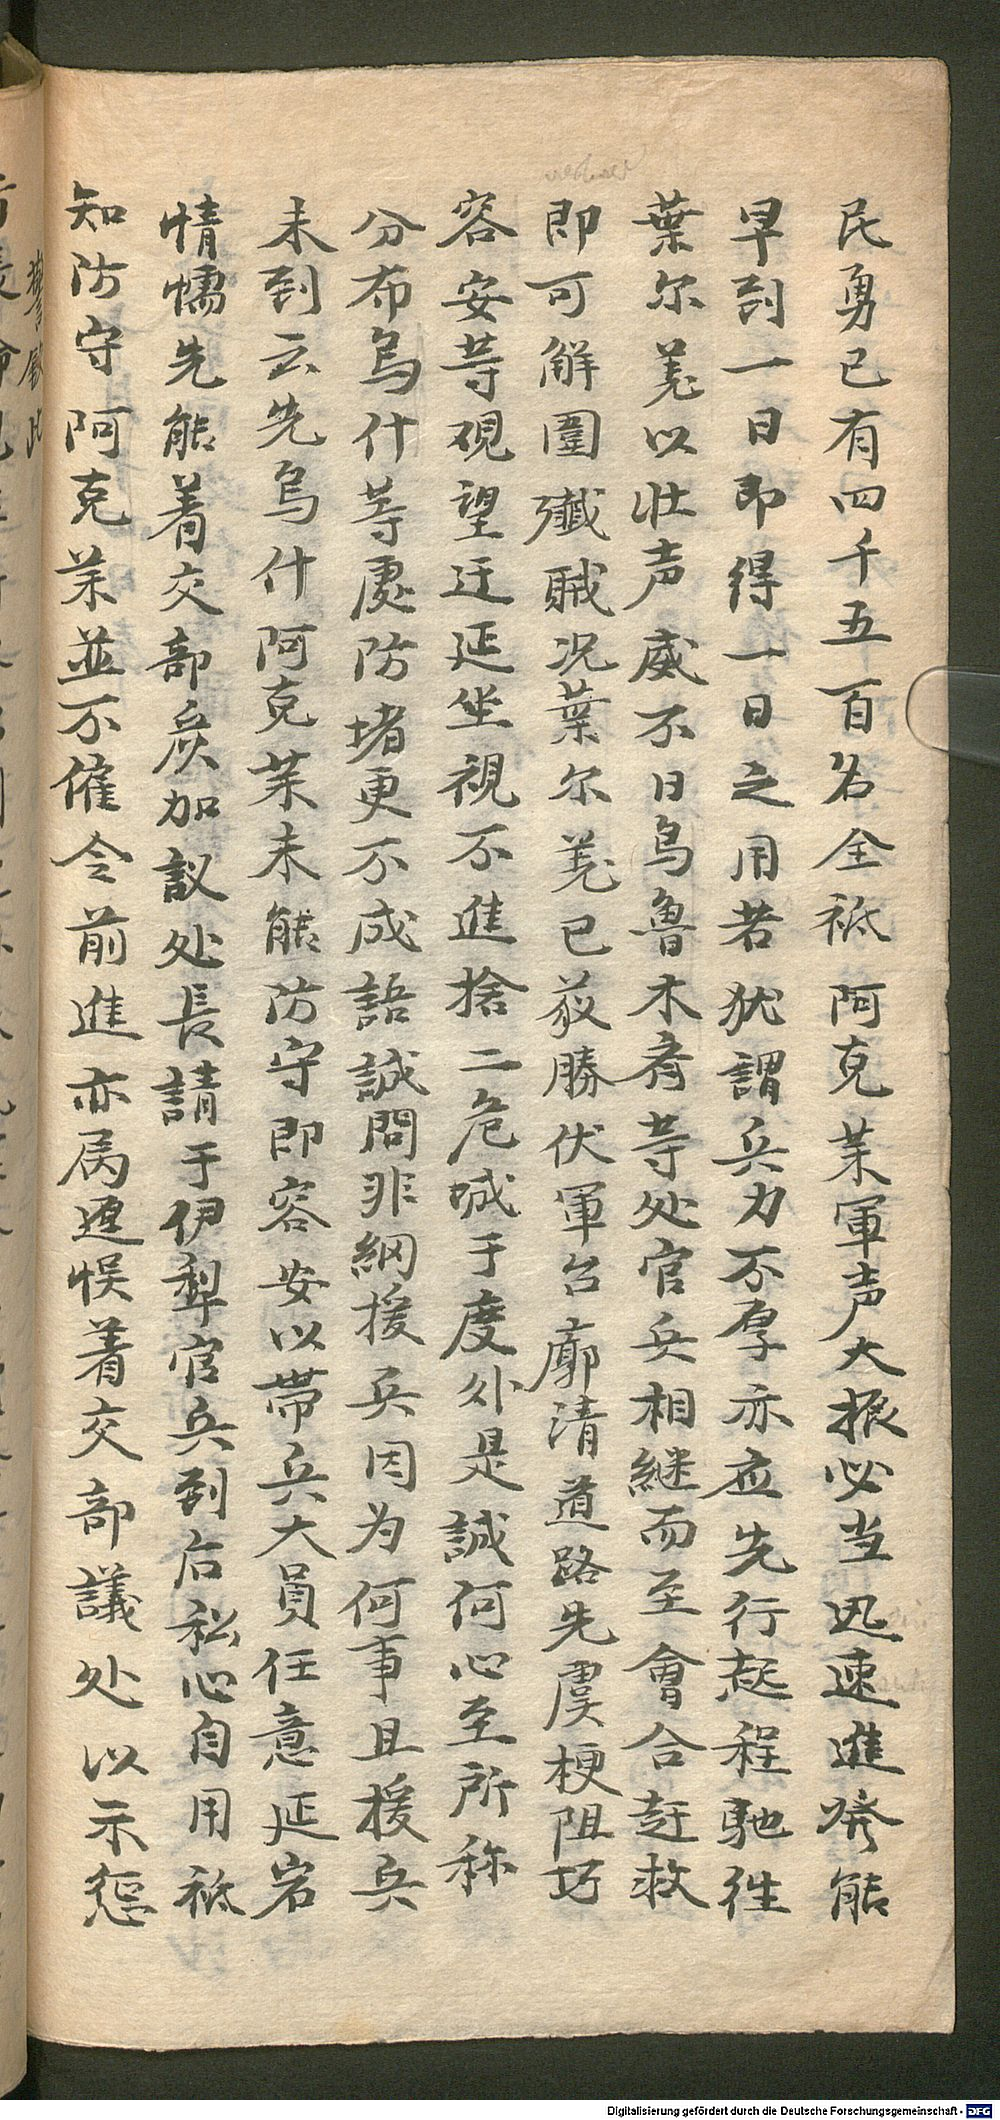 民勇已有四千五百名全祗阿克苿軍声大振必当迅速進發能
早到一日即得一日之用若犹謂兵力不厚亦应先行起程馳徃
葉尔羗以壮声威不日烏魯木斉等处官兵相継而至會合赶救
即可解圍殲賊况葉尔羗已获勝伏軍台廓清道路先虞梗阻巧
容安等硯望迁延坐視不進捨二危城于度外是誠何心至所称
分布烏什等處防堵更不成語誠問非綱援兵因为何事且援兵
未到云先烏什阿克苿未能防守即容安以帶兵大員任意延宕
情懦先能着交部炭加議处長請于伊犁官兵到后私心自用祗
知防守阿克苿並不催令前進亦属遲悮着交部議处以示懲
Digitalisierung gefördert durch die Deutsche Forschungsgemeinschaft - DFG